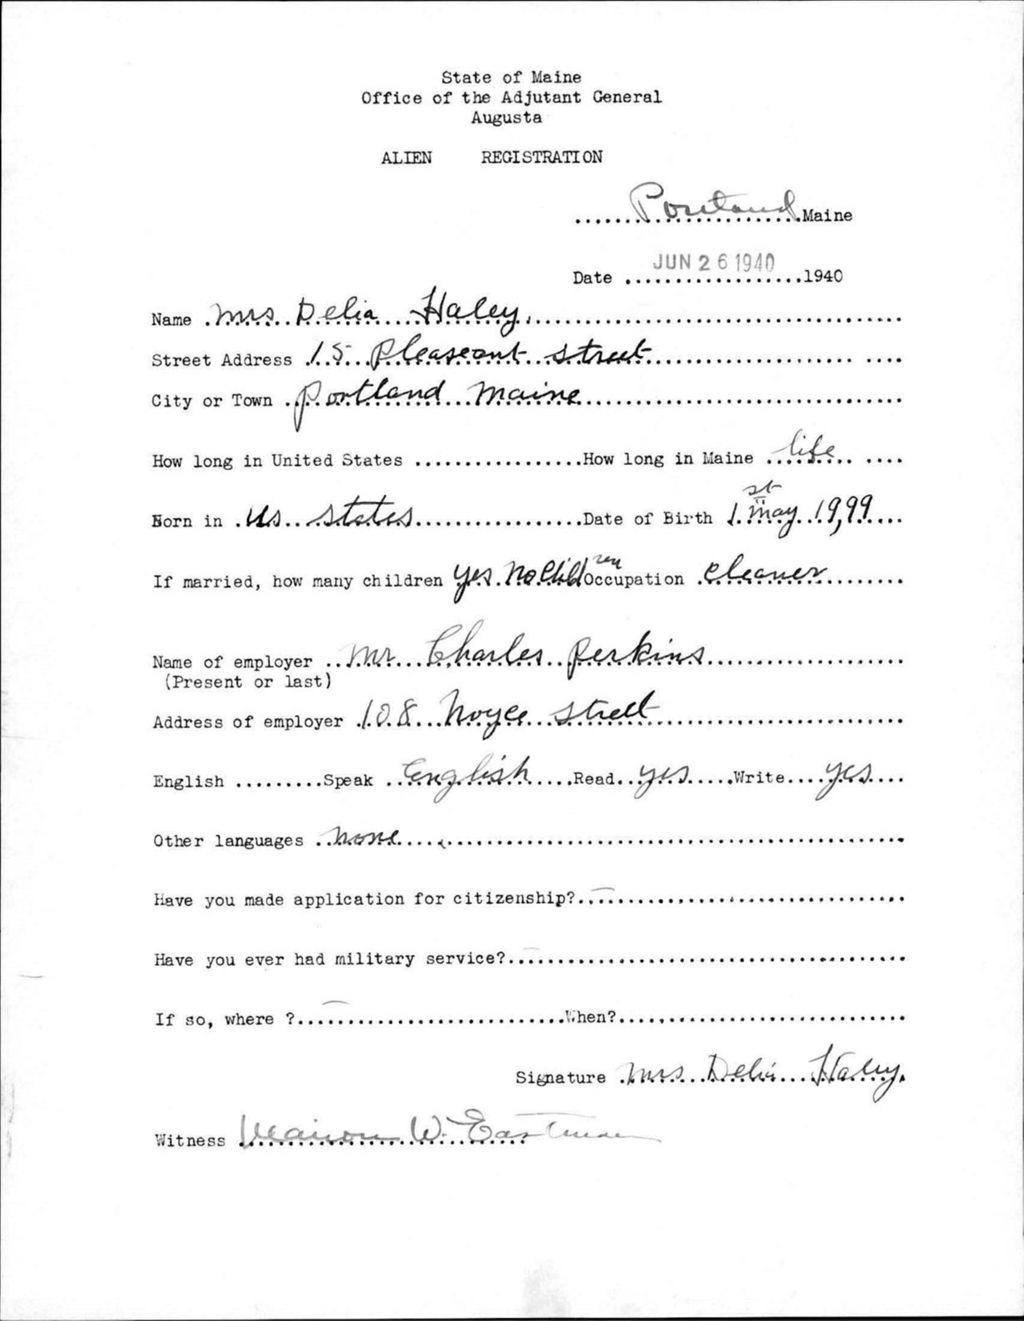 State of Maine
Office of the Adjutant General
Augusta
ALIEN REGISTRATION
.......Portland.......Maine
JUN 26 1940
Date ..................1940
Name .Mrs..Delia...Haley.............................
Street Address .15..Pleaseant..street......................
City or Town ..Portland...Maine..............................
How long in United States .................How long in Maine ..life.. ....
st
Born in .Us..States.................Date of Birth 1.May..19,99....
ren
If married, how many children yes.No Child Occupation .cleaner.........
Name of employer ..Mr...Charles..Perkins....................
(Present or last)
Address of employer .108..Noyce..street.........................
English .........Speak ..English....Read..yes.....Write....yes....
Other languages ..none..........................................
Have you made application for citizenship?..—..............................
Have you ever had military service?..—...................................
If so, where ?..—.........................When?............................
Signature .Mrs...Delia...Haley.
Witness Marion W. Eastman